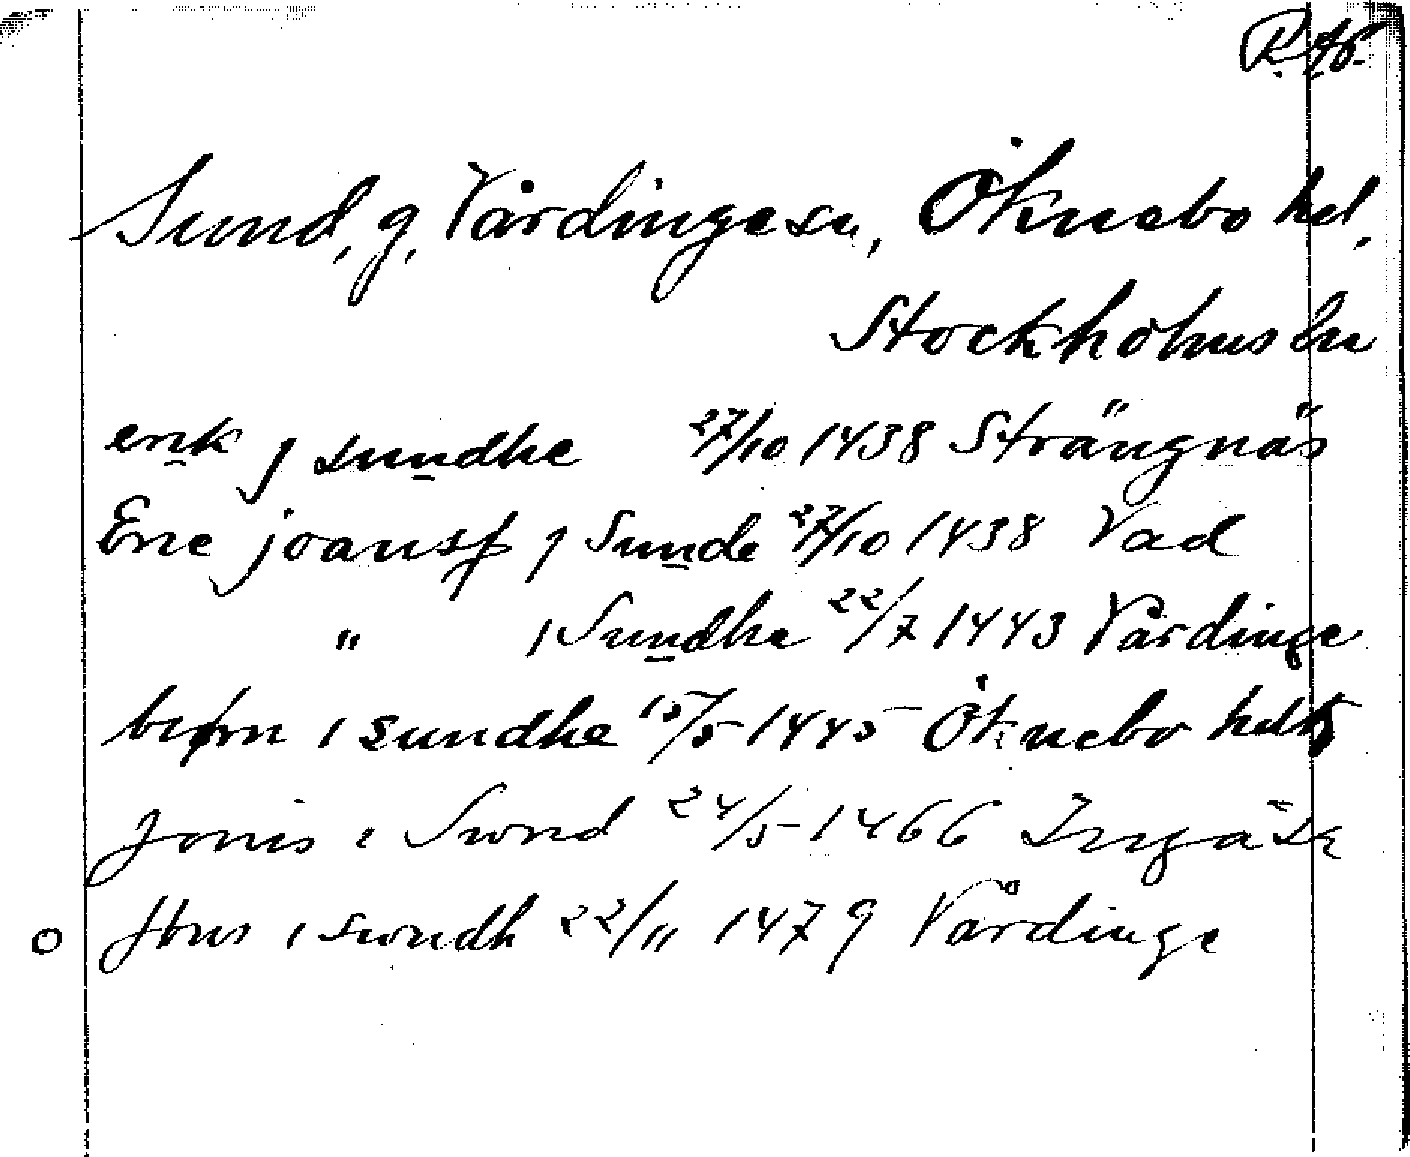 Sund, g, Vårdinge sn, Öknebo hd,
Stockholms ln
erik j sundhe 27/10 1438 Strängnäs
Eric joansß j Sunde 27/10 1438 Vad
" i Sundhe 22/7 1443 Vårdinge
biørn i sundhe 15/5 1445 Öknebo hdt
Jonis i Swnd 24/5 1466
Jöns i swndh 22/11 1479 Vårdinge